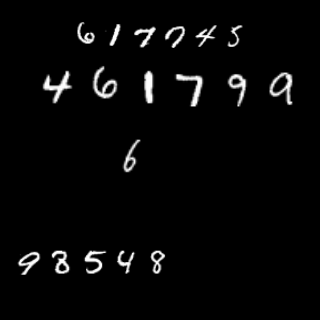 617745
461799
6
98548